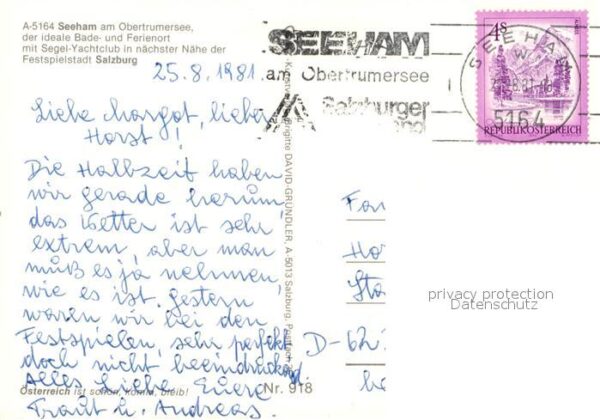 A-5164 Seeham am Obertrumersee,
der ideale Bade- und Ferienort
mit Segel-Yachtclub in nächster Nähe der
Festspielstadt Salzburg
25.8.1981
Liebe Margot, lieber
Horst!
Die Halbzeit haben
wir gerade herum,
das Wetter ist sehr
extrem, aber man
muß es ja nehmen,
wie es ist. Gestern
waren wir bei den
Festspielen, sehr perfekt
doch nicht beeindruckend
Alles Liebe Eure
Traudt u. Andreas.
Österreich ist schön, komm, bleib!
Nr. 918
Brigitte DAVID-GRÜNDLER, A-5013 Salzburg,
SEEHAM
am Obertrumersee
Salzburger
SEEHAM
5164
4S
REPUBLIK ÖSTERREICH
Fa
Ho
Sta
D-62
privacy protection
Datenschutz